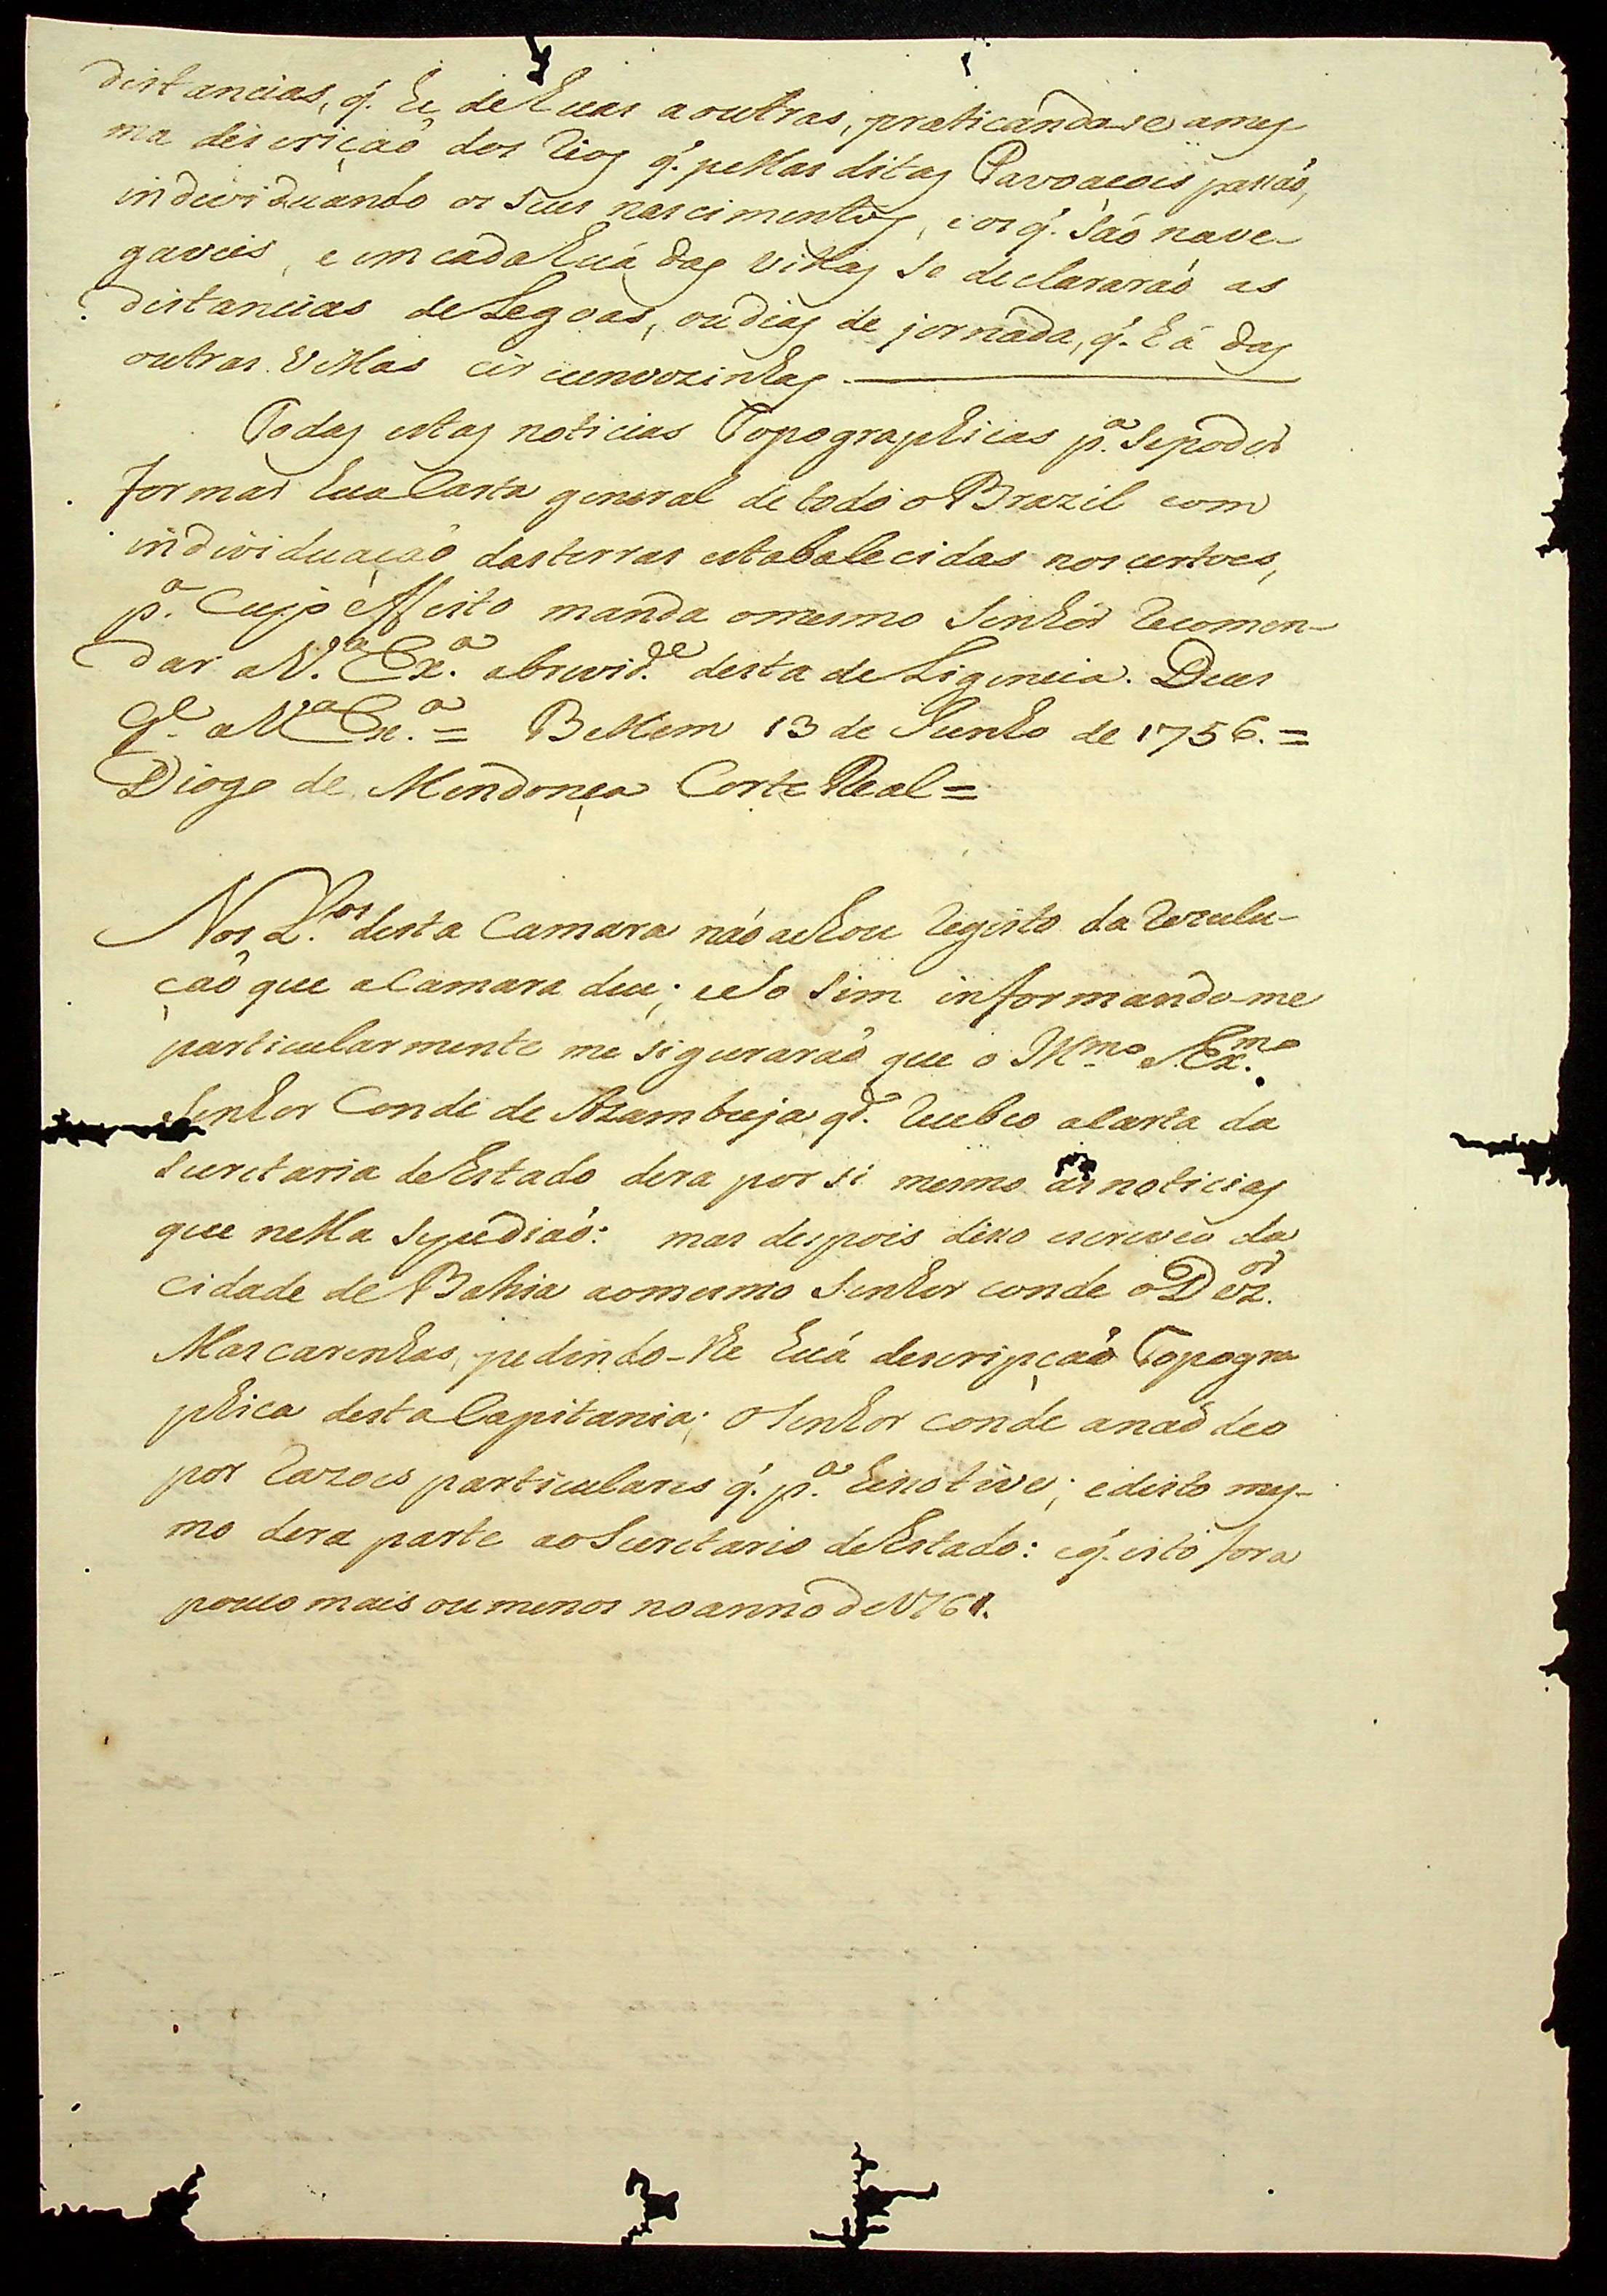 distancias, q̃. he de huas a outras, praticandose a mes
ma descrição dos rios q̃. pellas ditas Pavoaçois passaõ,
individuando os seus nascimentos, e os q̃. saõ nave-
gaveis, e em cada huá das villas se declararaõ as
distancias de Legoas, ou dias de jornada, q̃. há das
outras Villas circunvozinhas.
Todas estas noticias Topographicas pª. se poder
formar hua Carta general de todo o Brazil com
individuação das terras estabalecidas nos certoes,
pª. cujo effeito manda o mesmo Senhor recomen-
dar a Vª. Exª. a brevidᵉ. desta deLigencia. Deus
Gᵉ. a Vª Exª. = Bellem 13 de Junho de 1756. =
Diogo de Mendonça Corte Real =
Nos L.ᵒˢ desta Camara naõ achou registo da rezulu-
çaõ que a Camara deu; e so sim informando-me
particularmente me siguraraõ que o Illᵐᵒ e Exᵐᵒ.
Senhor Conde de Azambuja qᵈᵒ. recebeo a Carta da
Secretaria de Estado dera por si mesmo as noticias
que nella se pediaõ: mas despois disso escreveo da
Cidade de Bahia ao mesmo Senhor conde o Dezᵒʳ.
Mascarenhas, pedindo-lhe huá descripçaõ Topogra
phica desta Capitania; o Senhor conde a naõ deo
por razoes particulares q̃. pª. hisso tive; e disto mes-
mo dera parte ao Secretario de Estado: e q̃. isto fora
pouco mais ou menos no anno de 1761.